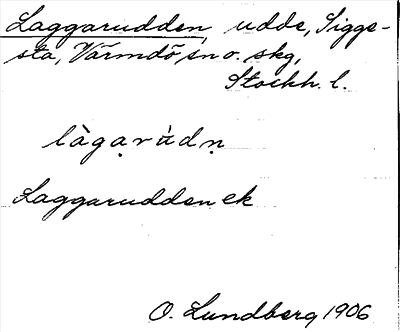 Laggarudden, udde, Sigge-
sta, Värmdö, sn o. skg,
Stockh. l.
làgạrùdṇ
Laggarudden ek
O. Lundberg 1906